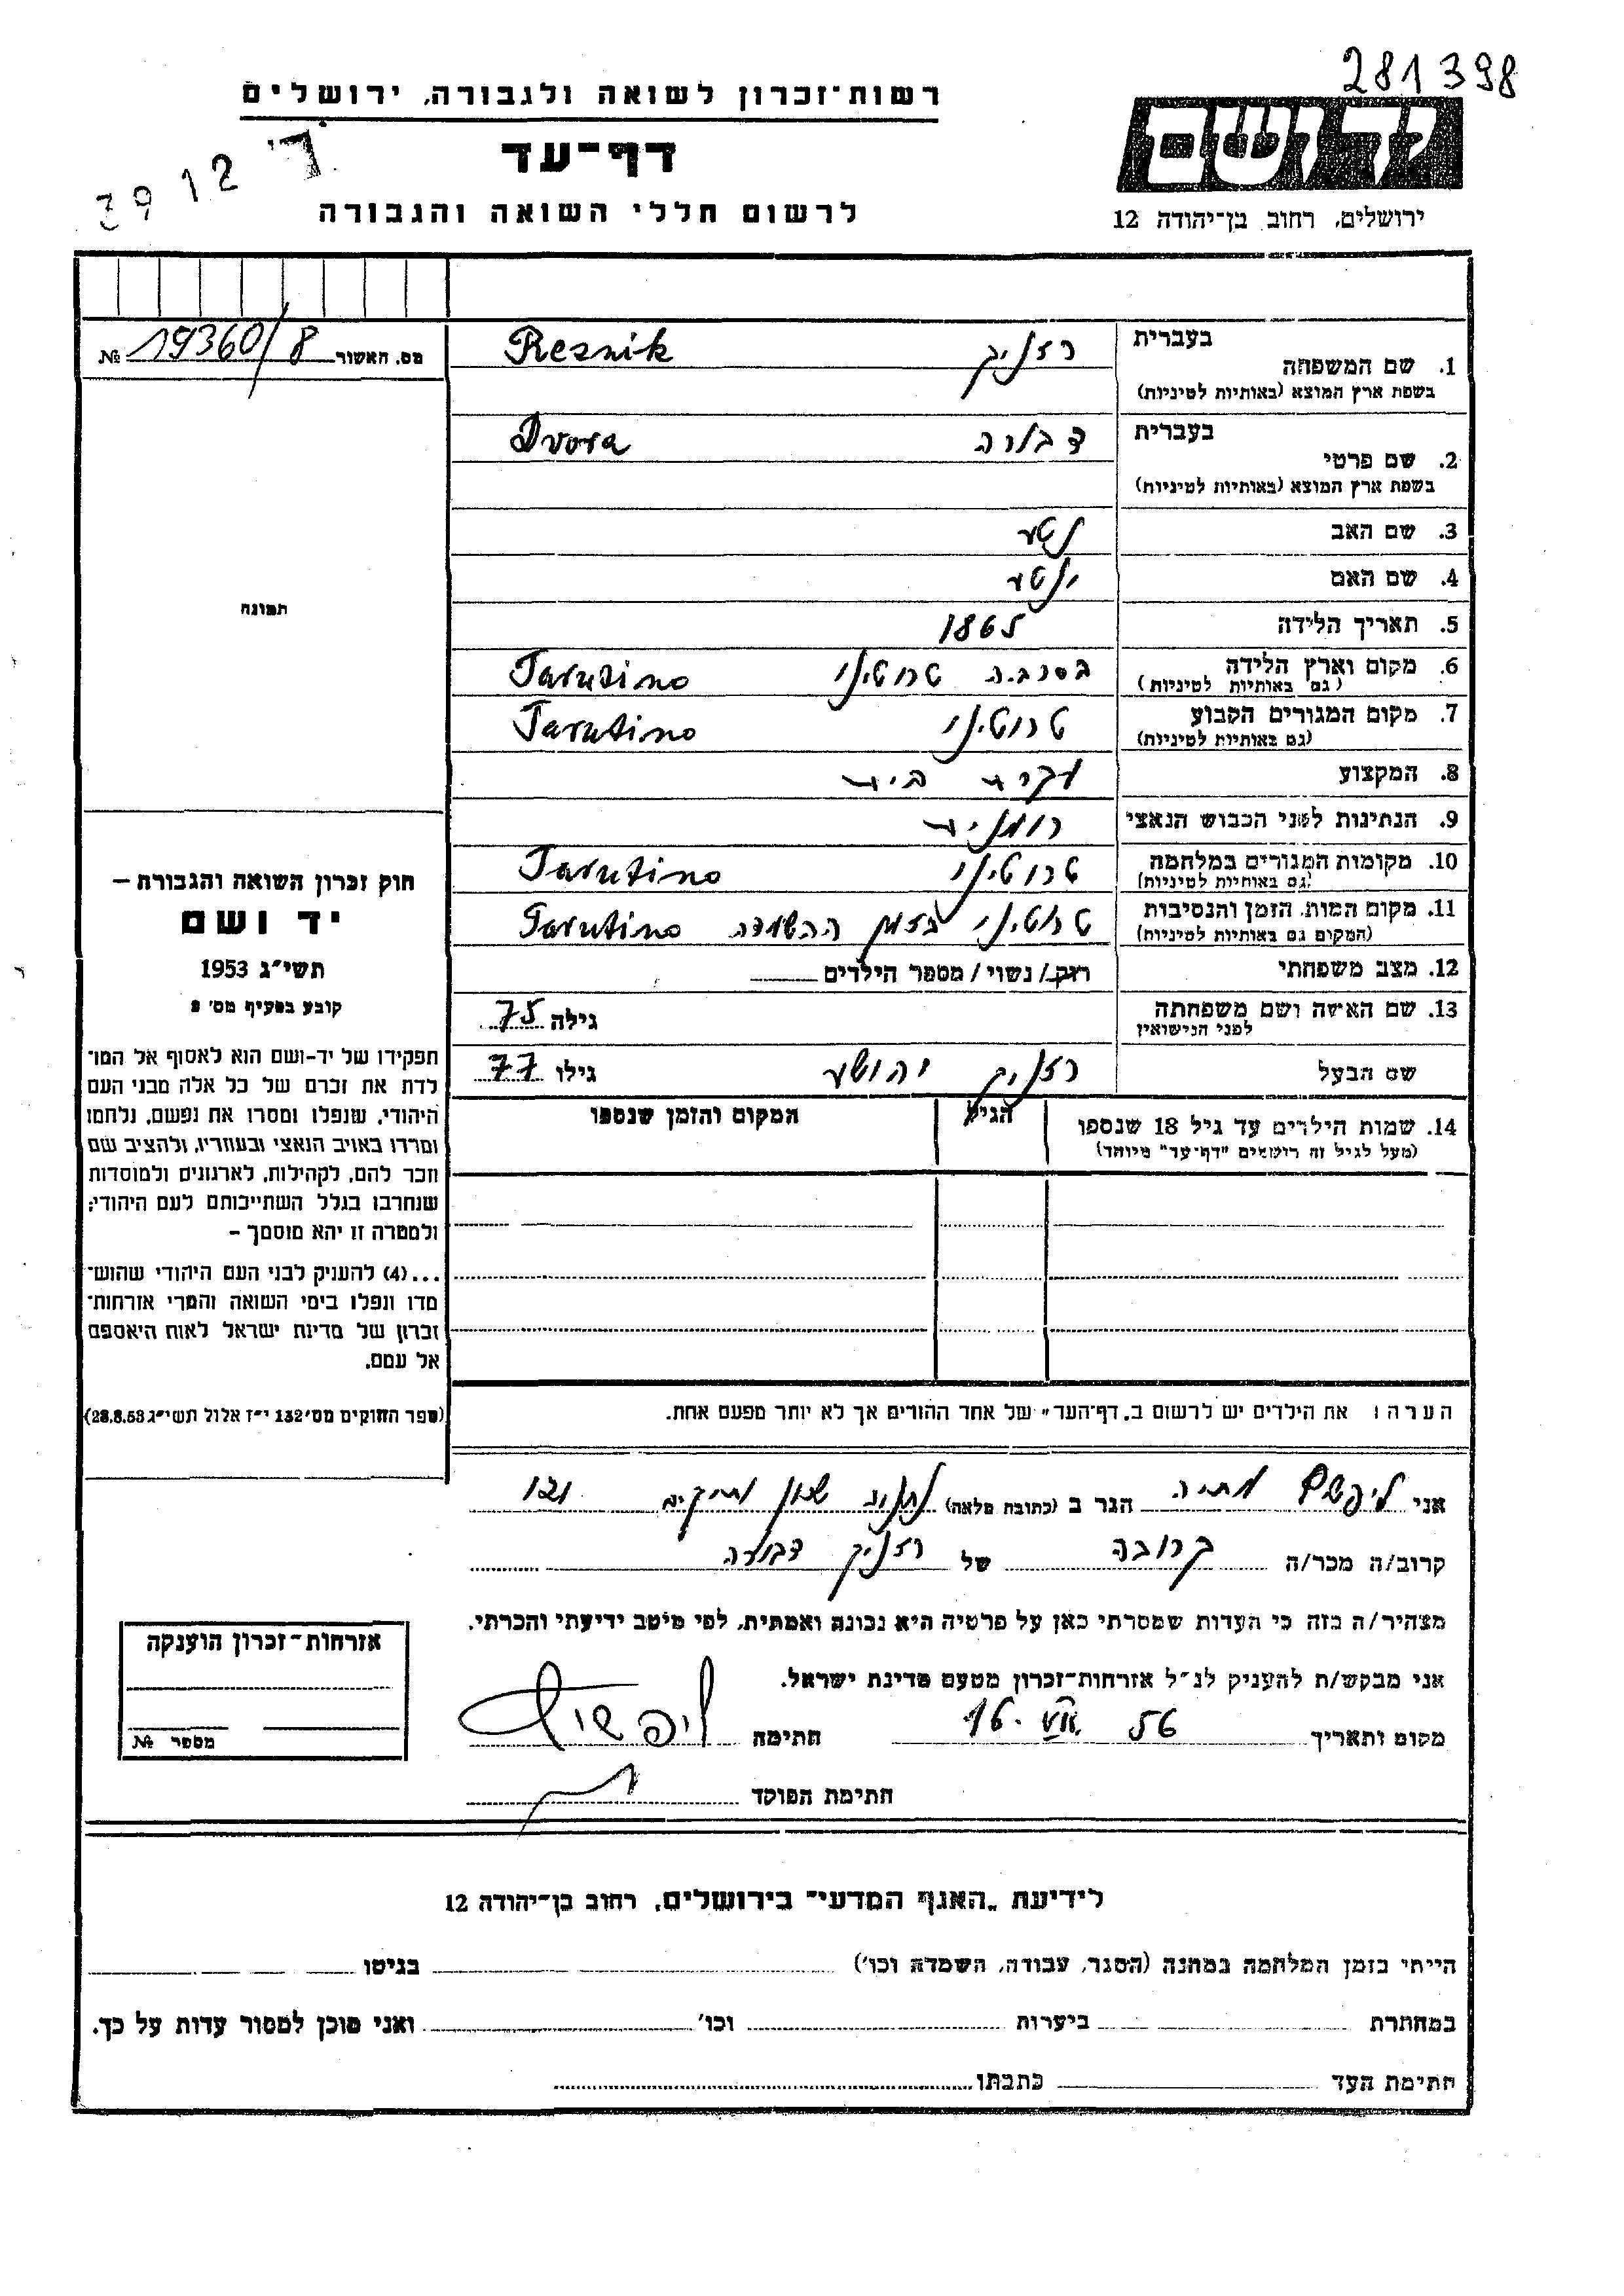 281398
רשות-זכרון לשואה ולגבורה, ירושלים
דף-עד
לרשום חללי השואה והגבורה
ד' 12 39
יד ושם
ירושלים, רחוב בן-יהודה 12
מס. האשור 19360/8 №
תמונה
בעברית
1. שם המשפחה
בשפת ארץ המוצא (באותיות לטיניות)
רזניק Reznik
בעברית
2. שם פרטי
בשפת ארץ המוצא (באותיות לטיניות)
דבורה Dvora
3. שם האב
4. שם האם
5. תאריך הלידה 1865
6. מקום וארץ הלידה
(גם באותיות לטיניות)
בסרביה טרוטינו Tarutino
7. מקום המגורים הקבוע
(גם באותיות לטיניות)
טרוטינו Tarutino
8. המקצוע עקרת בית
9. הנתינות לפני הכבוש הנאצי רומנית
10. מקומות המגורים במלחמה
(גם באותיות לטיניות)
טרוטינו Tarutino
11. מקום המות, הזמן והנסיבות
(המקום גם באותיות לטיניות)
טרוטינו בזמן ההשמדה Tarutino
12. מצב משפחתי רוק/נשוי/מספר הילדים
13. שם האשה ושם משפחתה
לפני הנישואין
גילה 75
שם הבעל רזניק יהושע גילו 77
14. שמות הילדים עד גיל 18 שנספו
(מעל לגיל זה רושמים "דף-עד" מיוחד)
הגיל
המקום והזמן שנספו
חוק זכרון השואה והגבורה –
יד ושם
תשי"ג 1953
קובע בסעיף מס' 2
תפקידו של יד-ושם הוא לאסוף אל המו־
לדת את זכרם של כל אלה מבני העם
היהודי, שנפלו ומסרו את נפשם, נלחמו
ומרדו באויב הנאצי ובעוזריו, ולהציב שם
וזכר להם, לקהילות, לארגונים ולמוסדות
שנחרבו בגלל השתייכותם לעם היהודי;
ולמטרה זו יהא מוסמך –
...(4) להעניק לבני העם היהודי שהוש־
מדו ונפלו בימי השואה והמרי אזרחות־
זכרון של מדינת ישראל לאות היאספם
אל עמם.
(ספר החוקים מס' 132 י"ז אלול תשי"ג 28.8.53)
הערה: את הילדים יש לרשום ב„דף-העד" של אחד ההורים אך לא יותר מפעם אחת.
אני ליפשס הגר ב (כתובת מלאה) נתניה שכון ותיקים 121
קרוב/ה מכר/ה קרובה של רזניק דבורה
מצהיר/ה בזה כי העדות שמסרתי כאן על פרטיה היא נכונה ואמתית, לפי מיטב ידיעתי והכרתי.
אני מבקש/ת להעניק לנ"ל אזרחות-זכרון מטעם מדינת ישראל.
מקום ותאריך 16. VII 56 חתימה
חתימת הפוקד
אזרחות-זכרון הוענקה
מספר №
לידיעת „האגף המדעי" בירושלים, רחוב בן-יהודה 12
הייתי בזמן המלחמה במחנה (הסגר, עבודה, השמדה וכו') בגיטו
במחתרת ביערות וכו' ואני מוכן למסור עדות על כך.
חתימת העד כתבתו